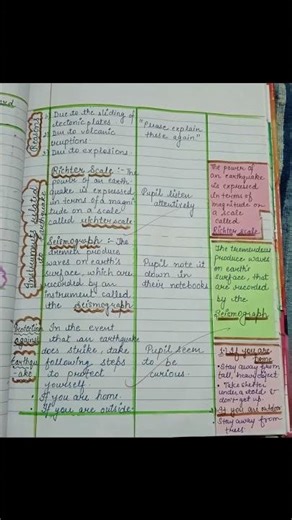 Reasons
Due to the sliding of
tectonic plates
Due to volcanic
eruptions
Due to explosions
"Please explain
these again"
Instruments related
Richter Scale :- The
power of an earth-
quake is expressed
in terms of a magni
tude on a scale
called richter scale
Pupil listen
attentively
The power of
an earthquake
is expressed
in terms of
magnitude on
a scale
called
Richter scale
Seismograph :- The
tremels produce
waves on earth's
surface, which are
recorded by an
instrument called
the Seismograph
Pupil note it
down in
their notebooks
The tremendeus
produce waves
on earth's
surface, that
are recorded
by the
Seismograph
against
Earthqu
-ake
In the event
that an earthquake
does strike, take
following steps
to protect
yourself.
• If you are home
• If you are outside-
Pupil seem
to be
curious.
1:- If you are
home
• Stay away from
tall, heavy object
• Take shelter
under a
don't get up.
If you are outdoor
• Stay away from
trees